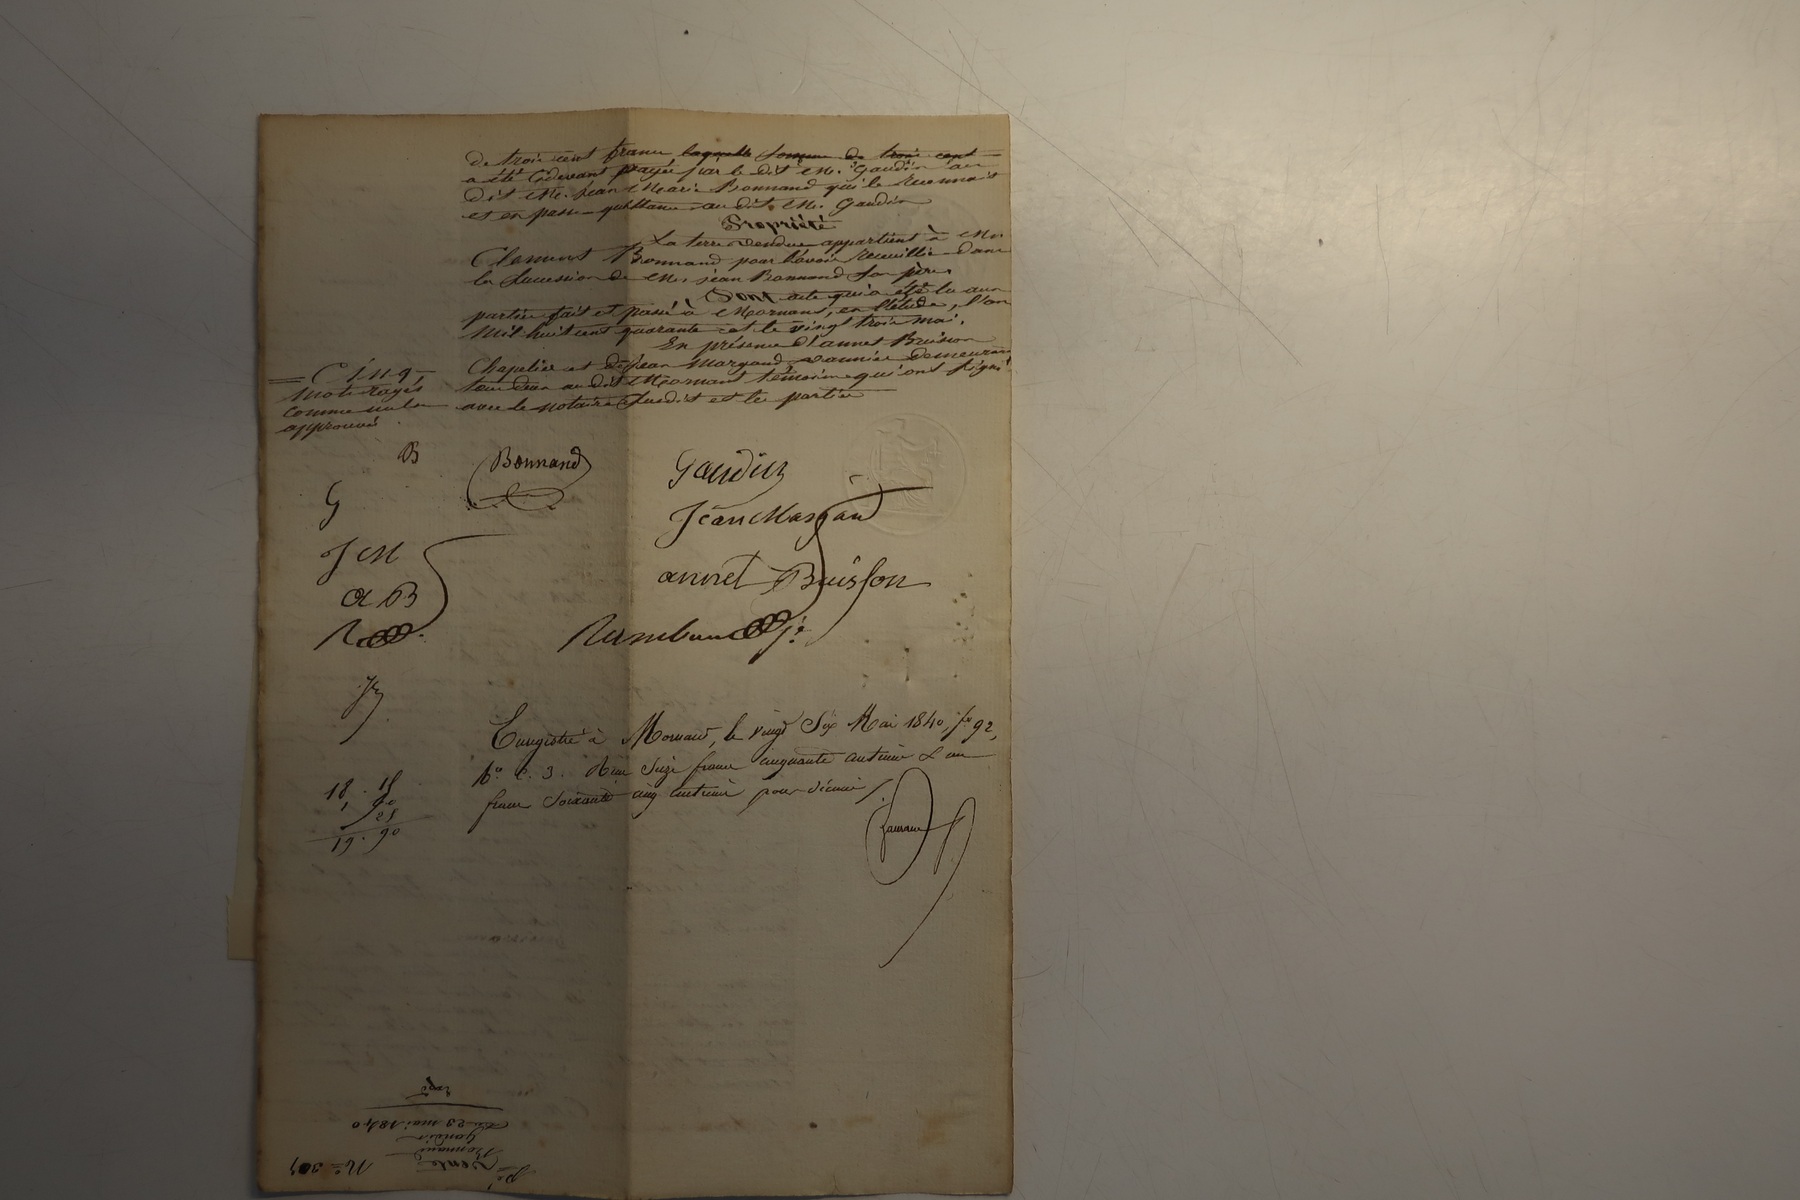 de trois cent francs laquelle somme de trois cent
a été cidevant payée par le dit Mr. Gaudin au
dit Mr. jean Marie Bonnand qui le reconnait
et en passe quittance au dit Mr. Gaudin
Propriété
La terre vendue appartient à Mr.
Clement Bonnand pour l'avoir recueillie dans
la succession de Mr. jean Bonnand son père.
Dont acte qui a été lu aux
parties fait et passé à Mornant, en l'étude, l'an
Mil huit cent quarante et le vingt trois mai.
En présence d'annet Buisson
Chapelier et de Jean Margand vannier demeurant
tous deux au dit Mornant témoins qui ont signé
avec le notaire susdit et les parties
Cinq
mots rayés
comme nuls
approuvés
B
Bonnand
Gaudin
G
Jean Margand
J M
annet Buisson
a B
Enregistré à Mornant, le vingt Six Mai 1840, fo 92,
Vo c. 3. Reçu Seize francs cinquante centimes & un
franc soixante cinq centimes pour décime
18. 15
1, 50
25
19. 90
No 307
vente
Bonnand
Gaudin
du 23 mai 1840